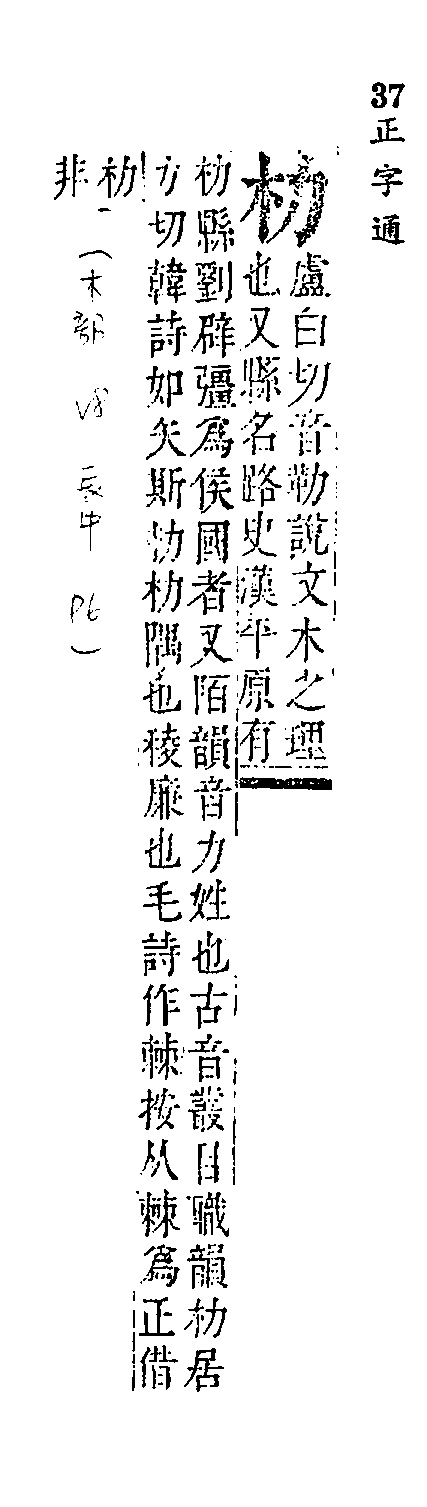 37
正字通
朸
盧白切音勒說文木之理
也又縣名路史漢平原有
朸縣劉辟彊為侯國者又陌韻音力姓也古音叢目職韻朸居
力切韓詩如矢斯朸朸隅也稜廉也毛詩作棘按从棘為正借
朸
非
（木部 辰中 P6）